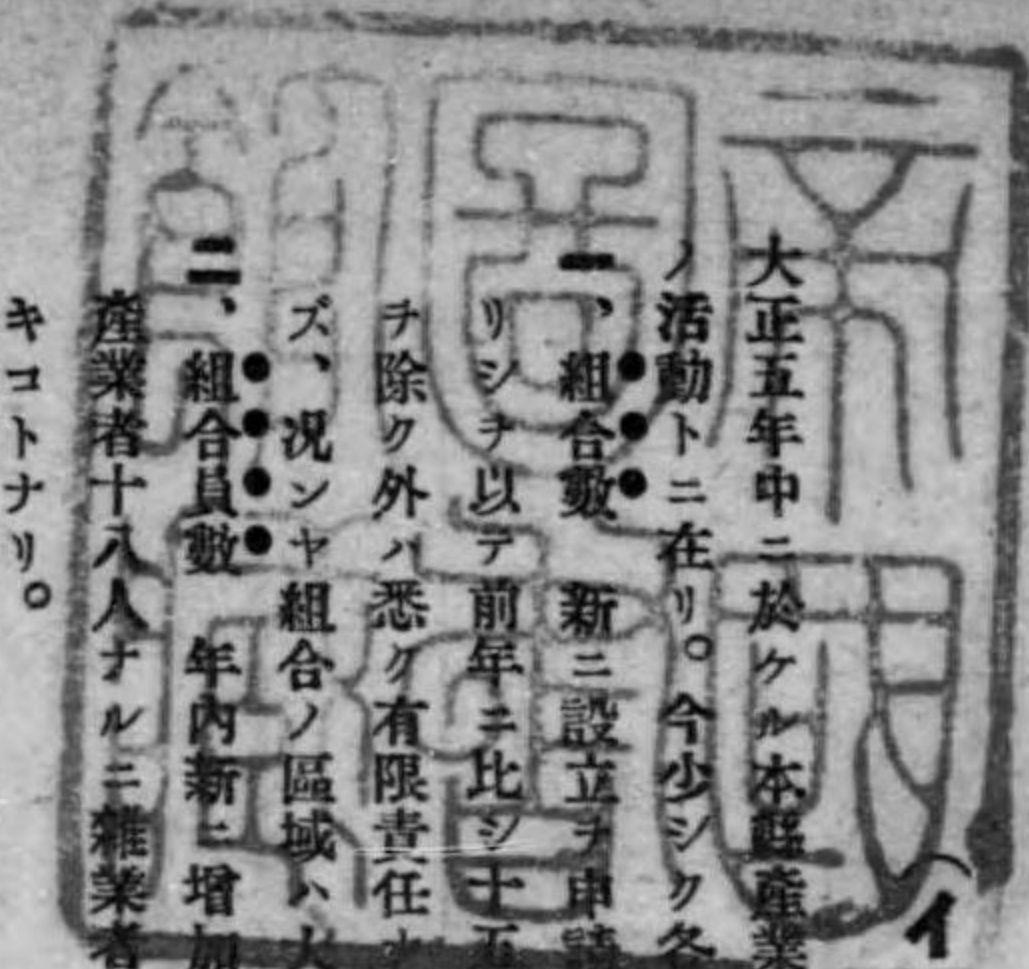 (イ
大正五年中ニ於ケル本縣産業
ノ活動トニ在リ。今少シク各
一、組合數 新ニ設立ヲ申請
リシヲ以テ前年ニ比シ十五
ヲ除ク外ハ悉ク有限責任
ズ、況ンヤ組合ノ區域ハ大
二、組合員數 年內新ニ增加
産業者十八人ナルニ雜業者
キコトナリ。